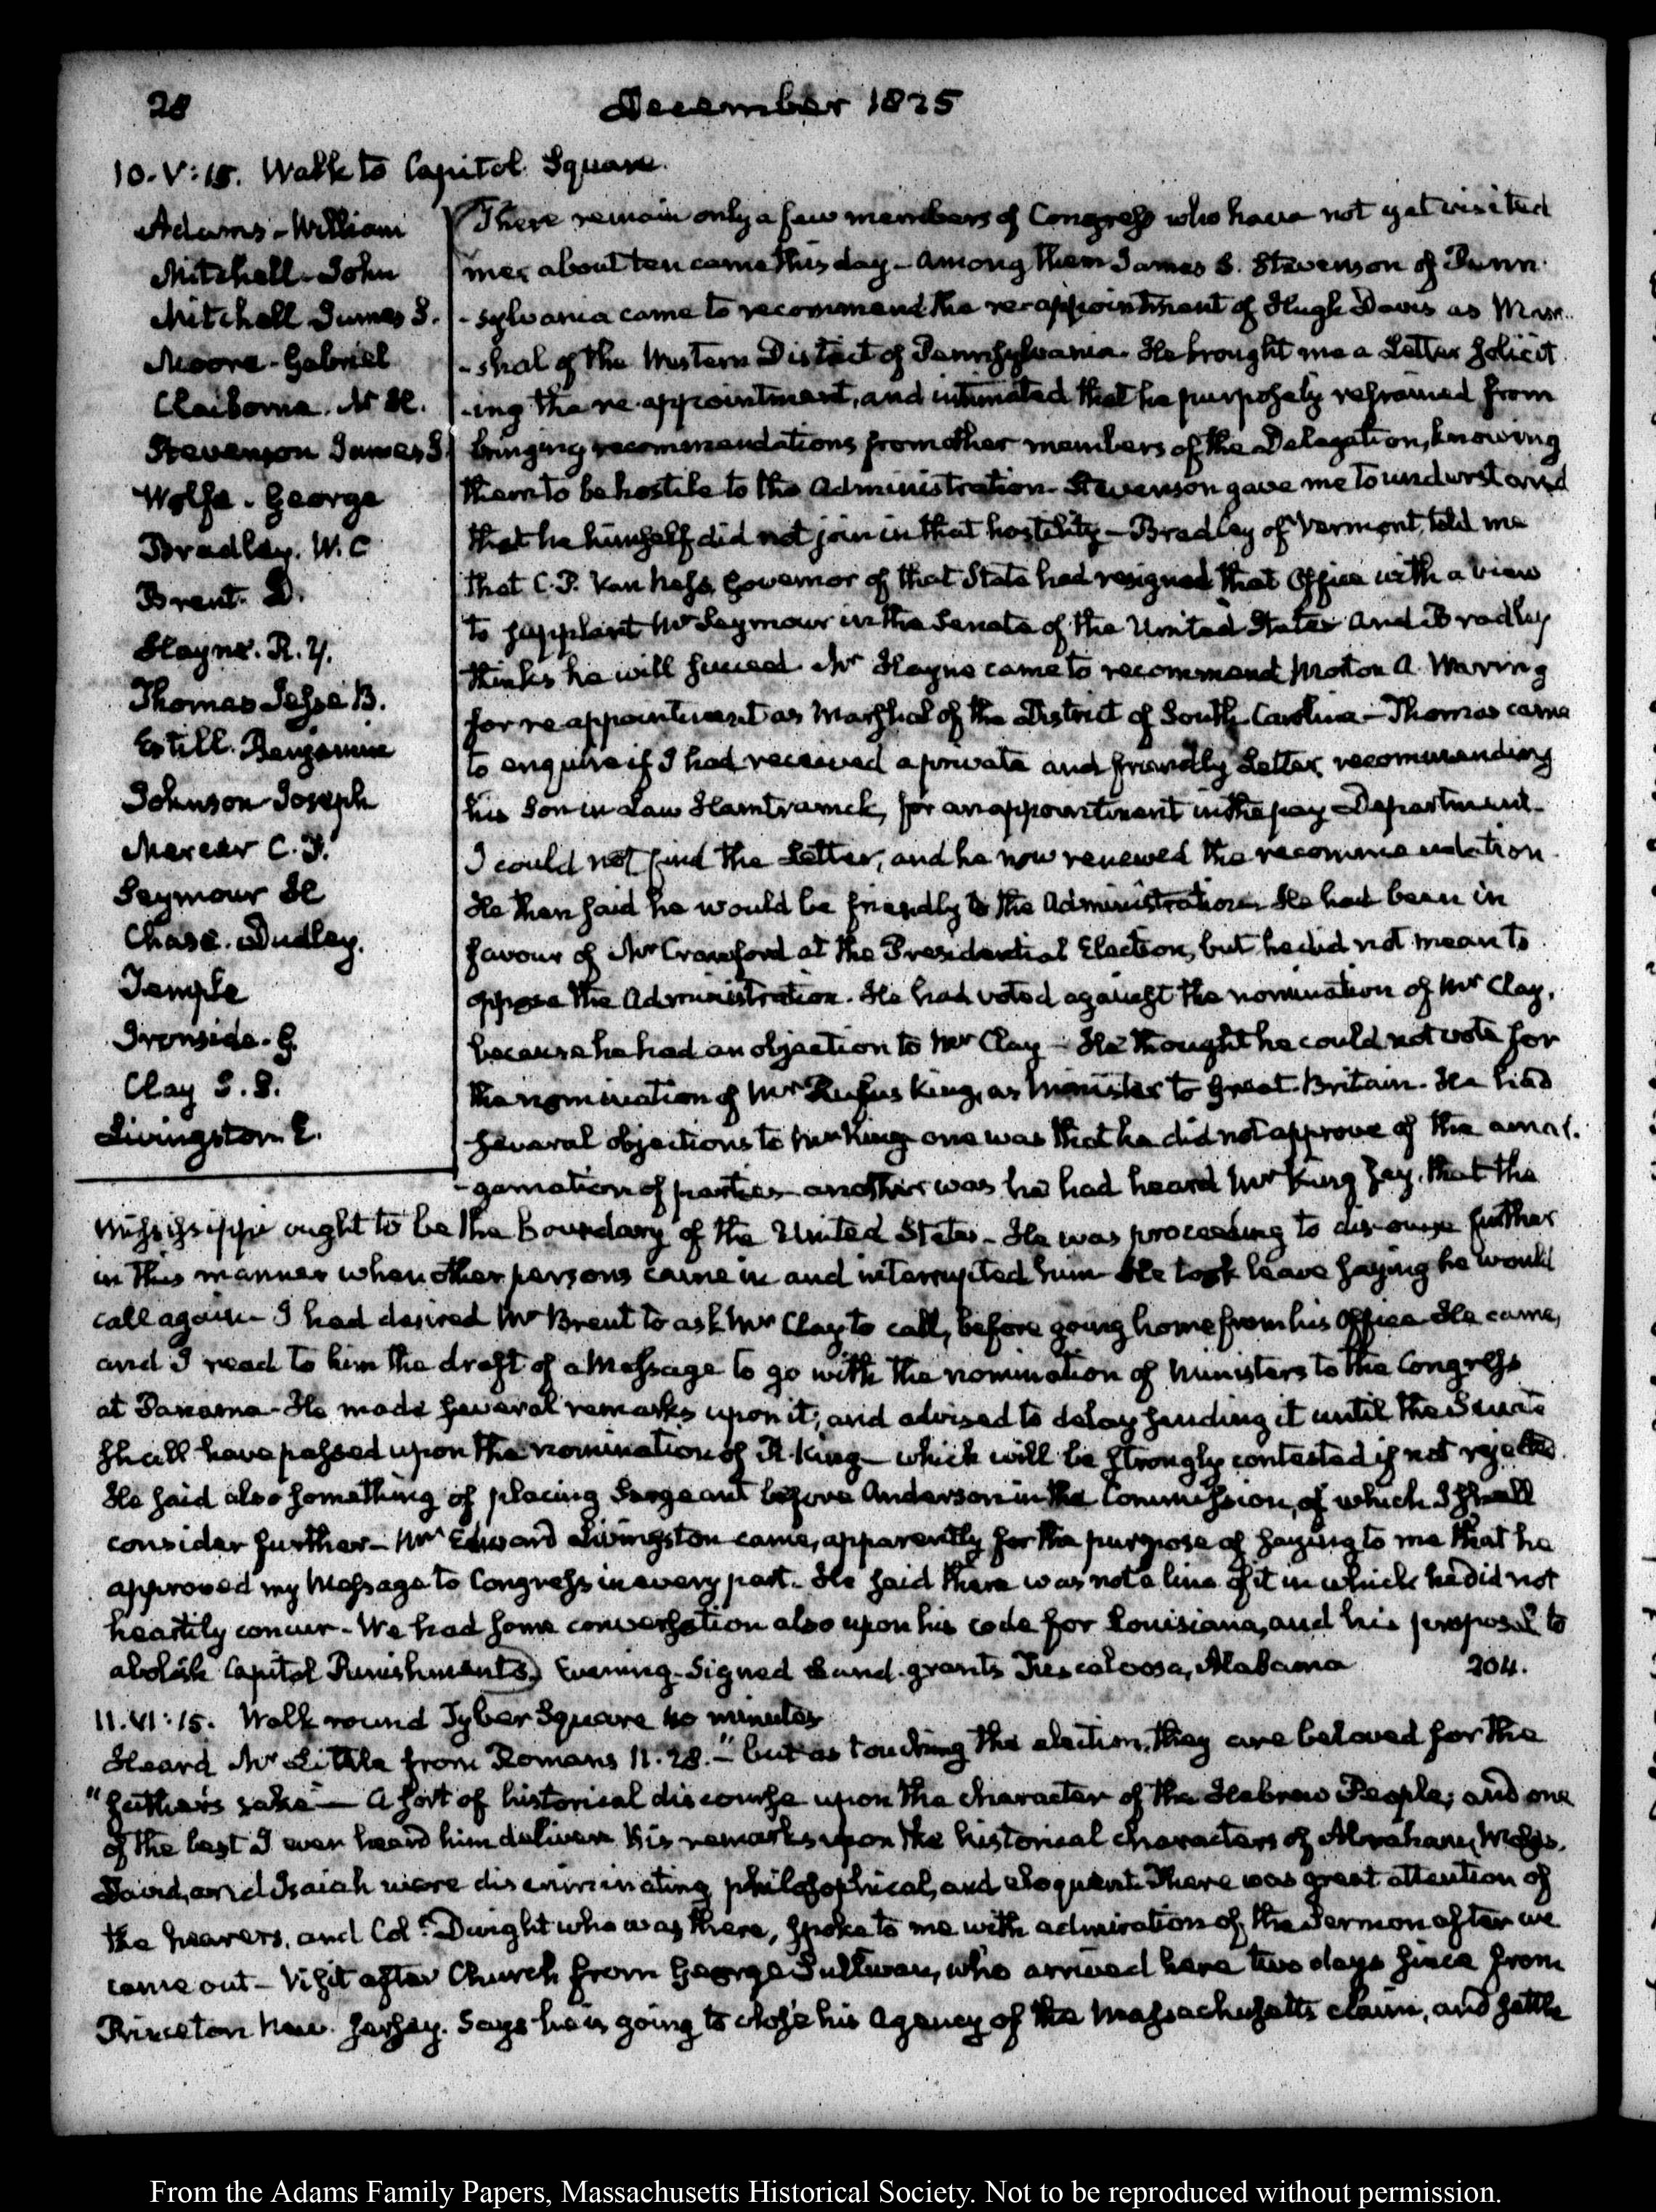 28
December 1825
10. V:15. Walk to Capitol Square.
Adams - William
Mitchell - John
Mitchell James S.
Moore - Gabriel
Claiborne. N. H.
Stevenson James S.
Wolfe - George
Bradley. W. C
Brent. D.
Hayne. R. Y.
Thomas Jesse B.
Estill. Benjamin
Johnson Joseph
Mercer C. F.
Seymour H
Chase. Dudley.
Temple
Ironside. G
Clay
Livingston E.
There remain only a few members of Congress who have not yet visited
me; about ten came this day - Among them James S. Stevenson of Penn-
-sylvania came to recommend the re-appointment of Hugh Davis as Mar-
-shal of the Western District of Pennsylvania. He brought me a Letter solicit
-ing the re-appointment, and intimated that he purposely refrained from
bringing recommendations from other members of the Delegation, knowing
them to be hostile to the Administration - Stevenson gave me to understand
that he himself did not join in that hostility - Bradley of Vermont, told me
that C. P. Van Ness, Governor of that State had resigned that Office with a view
to supplant Mr Seymour in the Senate of the United States and Bradley
thinks he will succeed. Mr Hayne came to recommend Morton A. Waring
for re appointment as Marshal of the District of South Carolina - Thomas came
to enquire if I had received a private and friendly Letter, recommending
his Son in Law Hamtramck, for an appointment in the pay Department.
I could not find the Letter, and he now renewed the recommendation
He then said he would be friendly to the Administration. He had been in
favour of Mr Crawford at the Presidential Election, but he did not mean to
oppose the Administration. He had voted against the nomination of Mr Clay,
because he had an objection to Mr Clay - He thought he could not vote for
the nomination of Mr Rufus King, as Minister to Great-Britain. He had
several objections to Mr King one was that he did not approve of the amal-
-gamation of parties - another was he had heard Mr King say, that the
Mississippi ought to be the Boundary of the United States - He was proceeding to discourse further
in this manner when other persons came in and interrupted him - He took leave saying he would
call again - I had desired Mr Brent to ask Mr Clay to call, before going home from his Office - He came,
and I read to him the draft of a Message to go with the nomination of Ministers to the Congress
at Panama - He made several remarks upon it, and advised to delay sending it until the Senate
shall have passed upon the nomination of R. King - which will be strongly contested if not rejected.
He said also something of placing Sergeant before Anderson in the Commission, of which I shall
consider further - Mr Edward Livingston came, apparently for the purpose of saying to me that he
approved my Message to Congress in every part. He said there was not a line of it in which he did not
heartily concur - We had some conversation also upon his code for Louisiana, and his proposal to
abolish Capital Punishments. Evening - Signed Land-grants Tuscaloosa, Alabama 204.
11. VI:15. Walk round Tyber Square 40 minutes
Heard Mr Little from Romans 11. 28. "but as touching the election, they are beloved for the
"father's sake" - A sort of historical discourse upon the character of the Hebrew People; and one
of the best I ever heard him deliver. His remarks upon the historical characters of Abraham, Moses,
David, and Isaiah were discriminating, philosophical, and eloquent. There was great attention of
the hearers, and Col. Dwight who was there, spoke to me with admiration of the Sermon after we
came out - Visit after Church from George Sullivan, who arrived here two days since from
Princeton New-Jersey. Says he is going to close his Agency of the Massachusetts claim, and settle
From the Adams Family Papers, Massachusetts Historical Society. Not to be reproduced without permission.